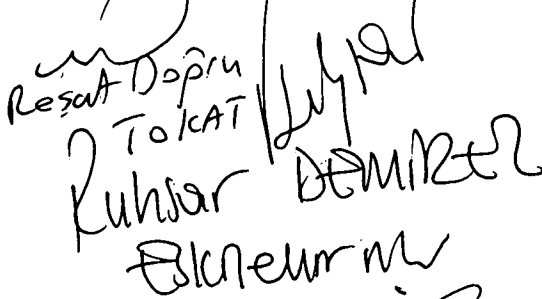 Reşat Doğru
TOKAT
Ruhsar DEMİREL
Eskişehir MV